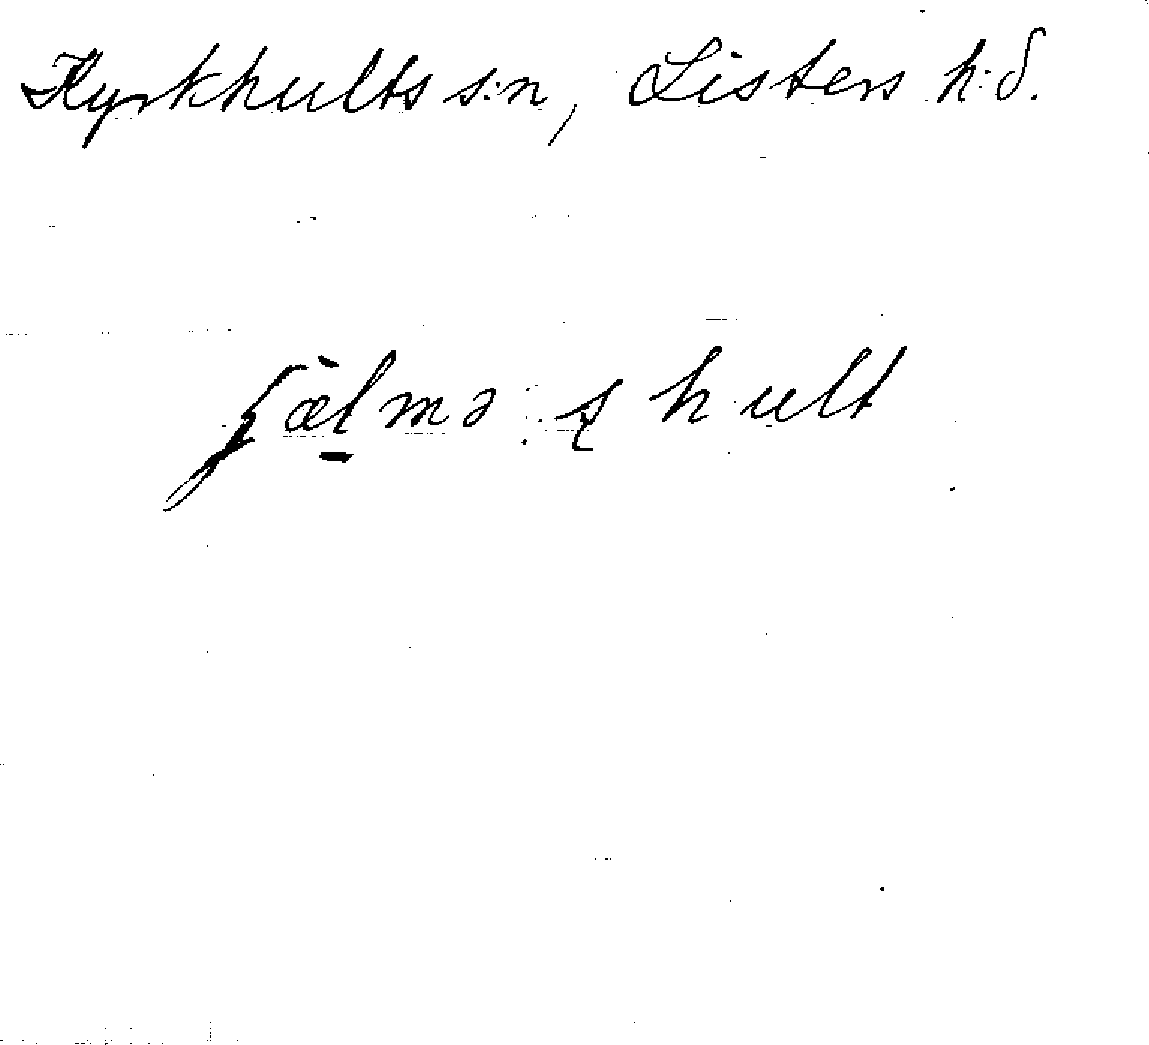 Kyrkhults s:n, Listers h:d.
jælmə s hult